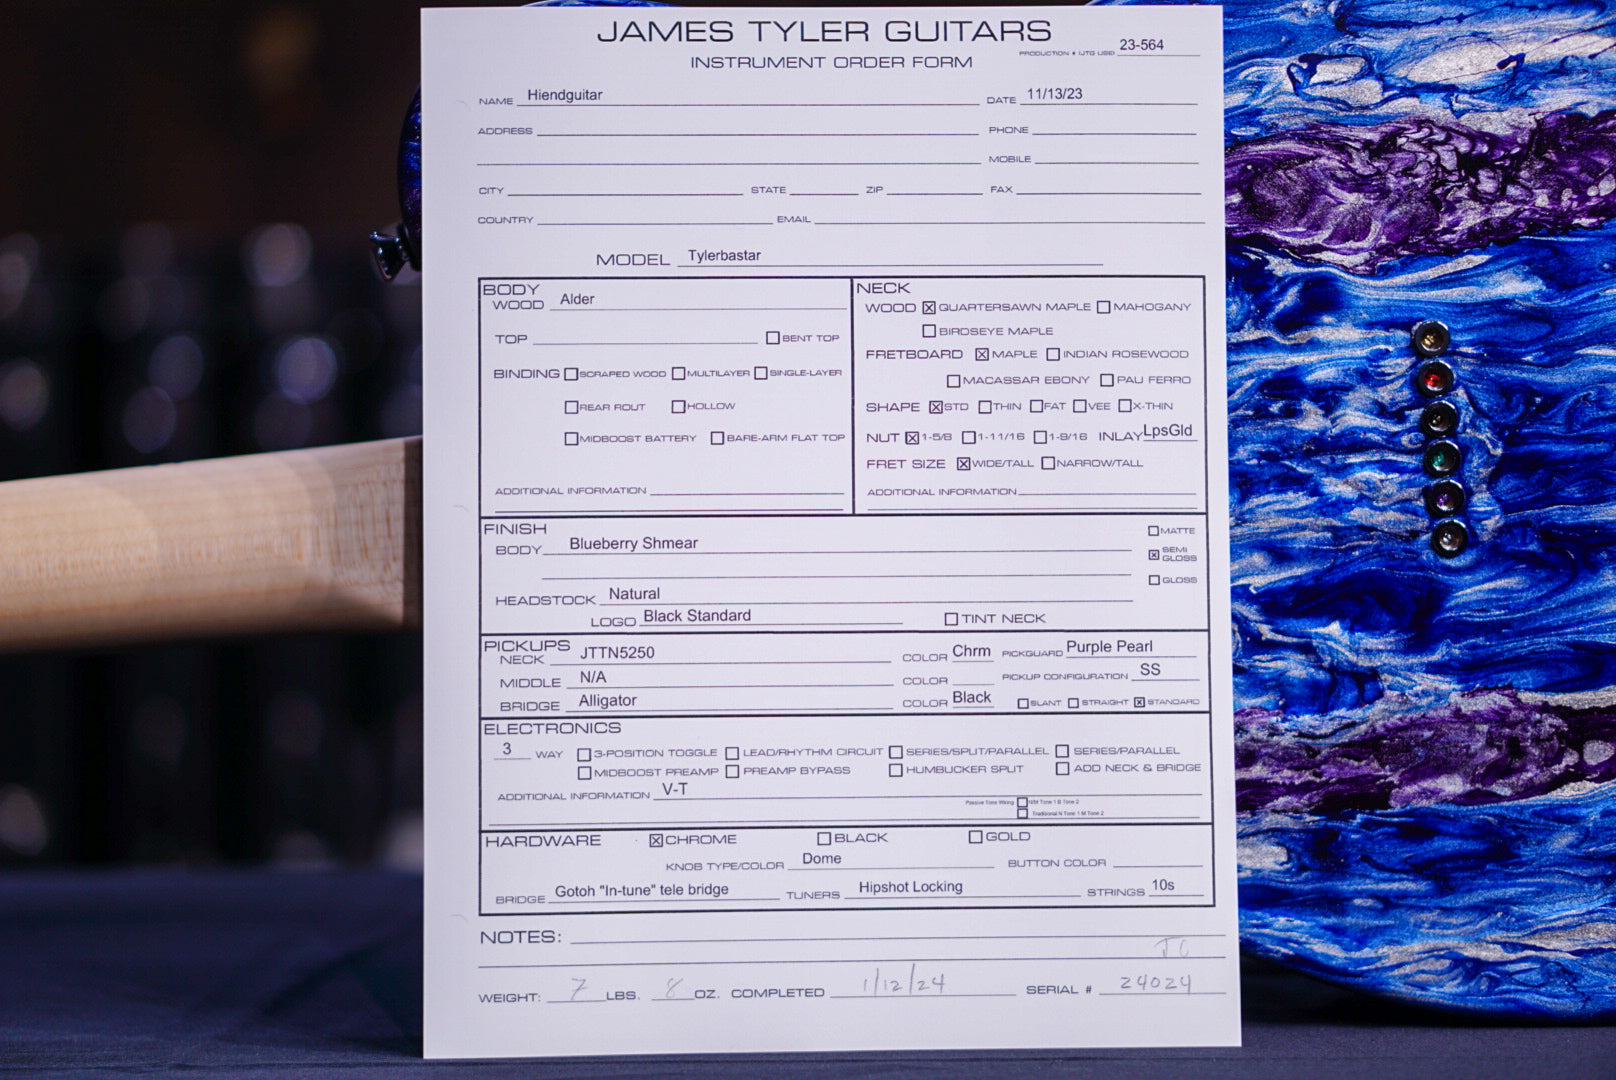 JAMES TYLER GUITARS
PRODUCTION # (JTG USE) 23-564
INSTRUMENT ORDER FORM
NAME Hiendguitar DATE 11/13/23
ADDRESS PHONE
MOBILE
CITY STATE ZIP FAX
COUNTRY EMAIL
MODEL Tylerbastar
BODY
WOOD Alder
TOP BENT TOP
BINDING SCRAPED WOOD MULTILAYER SINGLE-LAYER
REAR ROUT HOLLOW
MIDBOOST BATTERY BARE-ARM FLAT TOP
ADDITIONAL INFORMATION
NECK
WOOD ☒ QUARTERSAWN MAPLE ☐ MAHOGANY
☐ BIRDSEYE MAPLE
FRETBOARD ☒ MAPLE ☐ INDIAN ROSEWOOD
☐ MACASSAR EBONY ☐ PAU FERRO
SHAPE ☒ STD ☐ THIN ☐ FAT ☐ VEE ☐ X-THIN
NUT ☒ 1-5/8 ☐ 1-11/16 ☐ 1-9/16 INLAY LpsGld
FRET SIZE ☒ WIDE/TALL ☐ NARROW/TALL
ADDITIONAL INFORMATION
FINISH
BODY Blueberry Shmear
☐ MATTE
☒ SEMI GLOSS
☐ GLOSS
HEADSTOCK Natural
LOGO Black Standard ☐ TINT NECK
PICKUPS
NECK JTTN5250 COLOR Chrm PICKGUARD Purple Pearl
MIDDLE N/A COLOR PICKUP CONFIGURATION SS
BRIDGE Alligator COLOR Black ☐ SLANT ☐ STRAIGHT ☒ STANDARD
ELECTRONICS
3 WAY ☐ 3-POSITION TOGGLE ☐ LEAD/RHYTHM CIRCUIT ☐ SERIES/SPLIT/PARALLEL ☐ SERIES/PARALLEL
☐ MIDBOOST PREAMP ☐ PREAMP BYPASS ☐ HUMBUCKER SPLIT ☐ ADD NECK & BRIDGE
ADDITIONAL INFORMATION V-T
Passive Tone Wiring ☐ N/M Tone 1 B Tone 2
☐ Traditional N Tone 1 M Tone 2
HARDWARE ☒ CHROME ☐ BLACK ☐ GOLD
KNOB TYPE/COLOR Dome BUTTON COLOR
BRIDGE Gotoh "In-tune" tele bridge TUNERS Hipshot Locking STRINGS 10s
NOTES:
JC
WEIGHT: 7 LBS. 8 OZ. COMPLETED 1/12/24 SERIAL # 24024